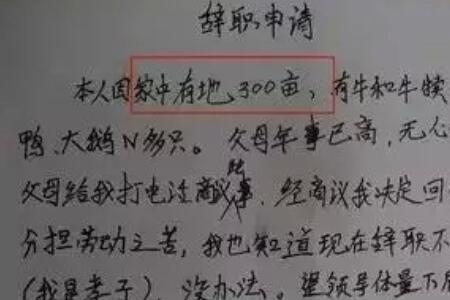 辞职申请
本人因家中有地300亩，有牛和牛犊
鸭、大鹅N多只。父母年事已高，无心
父母给我打电话商议此事，经商议我决定回
分担劳动之苦，我也知道现在辞职不
(我是孝子)，没办法。望领导体量下属